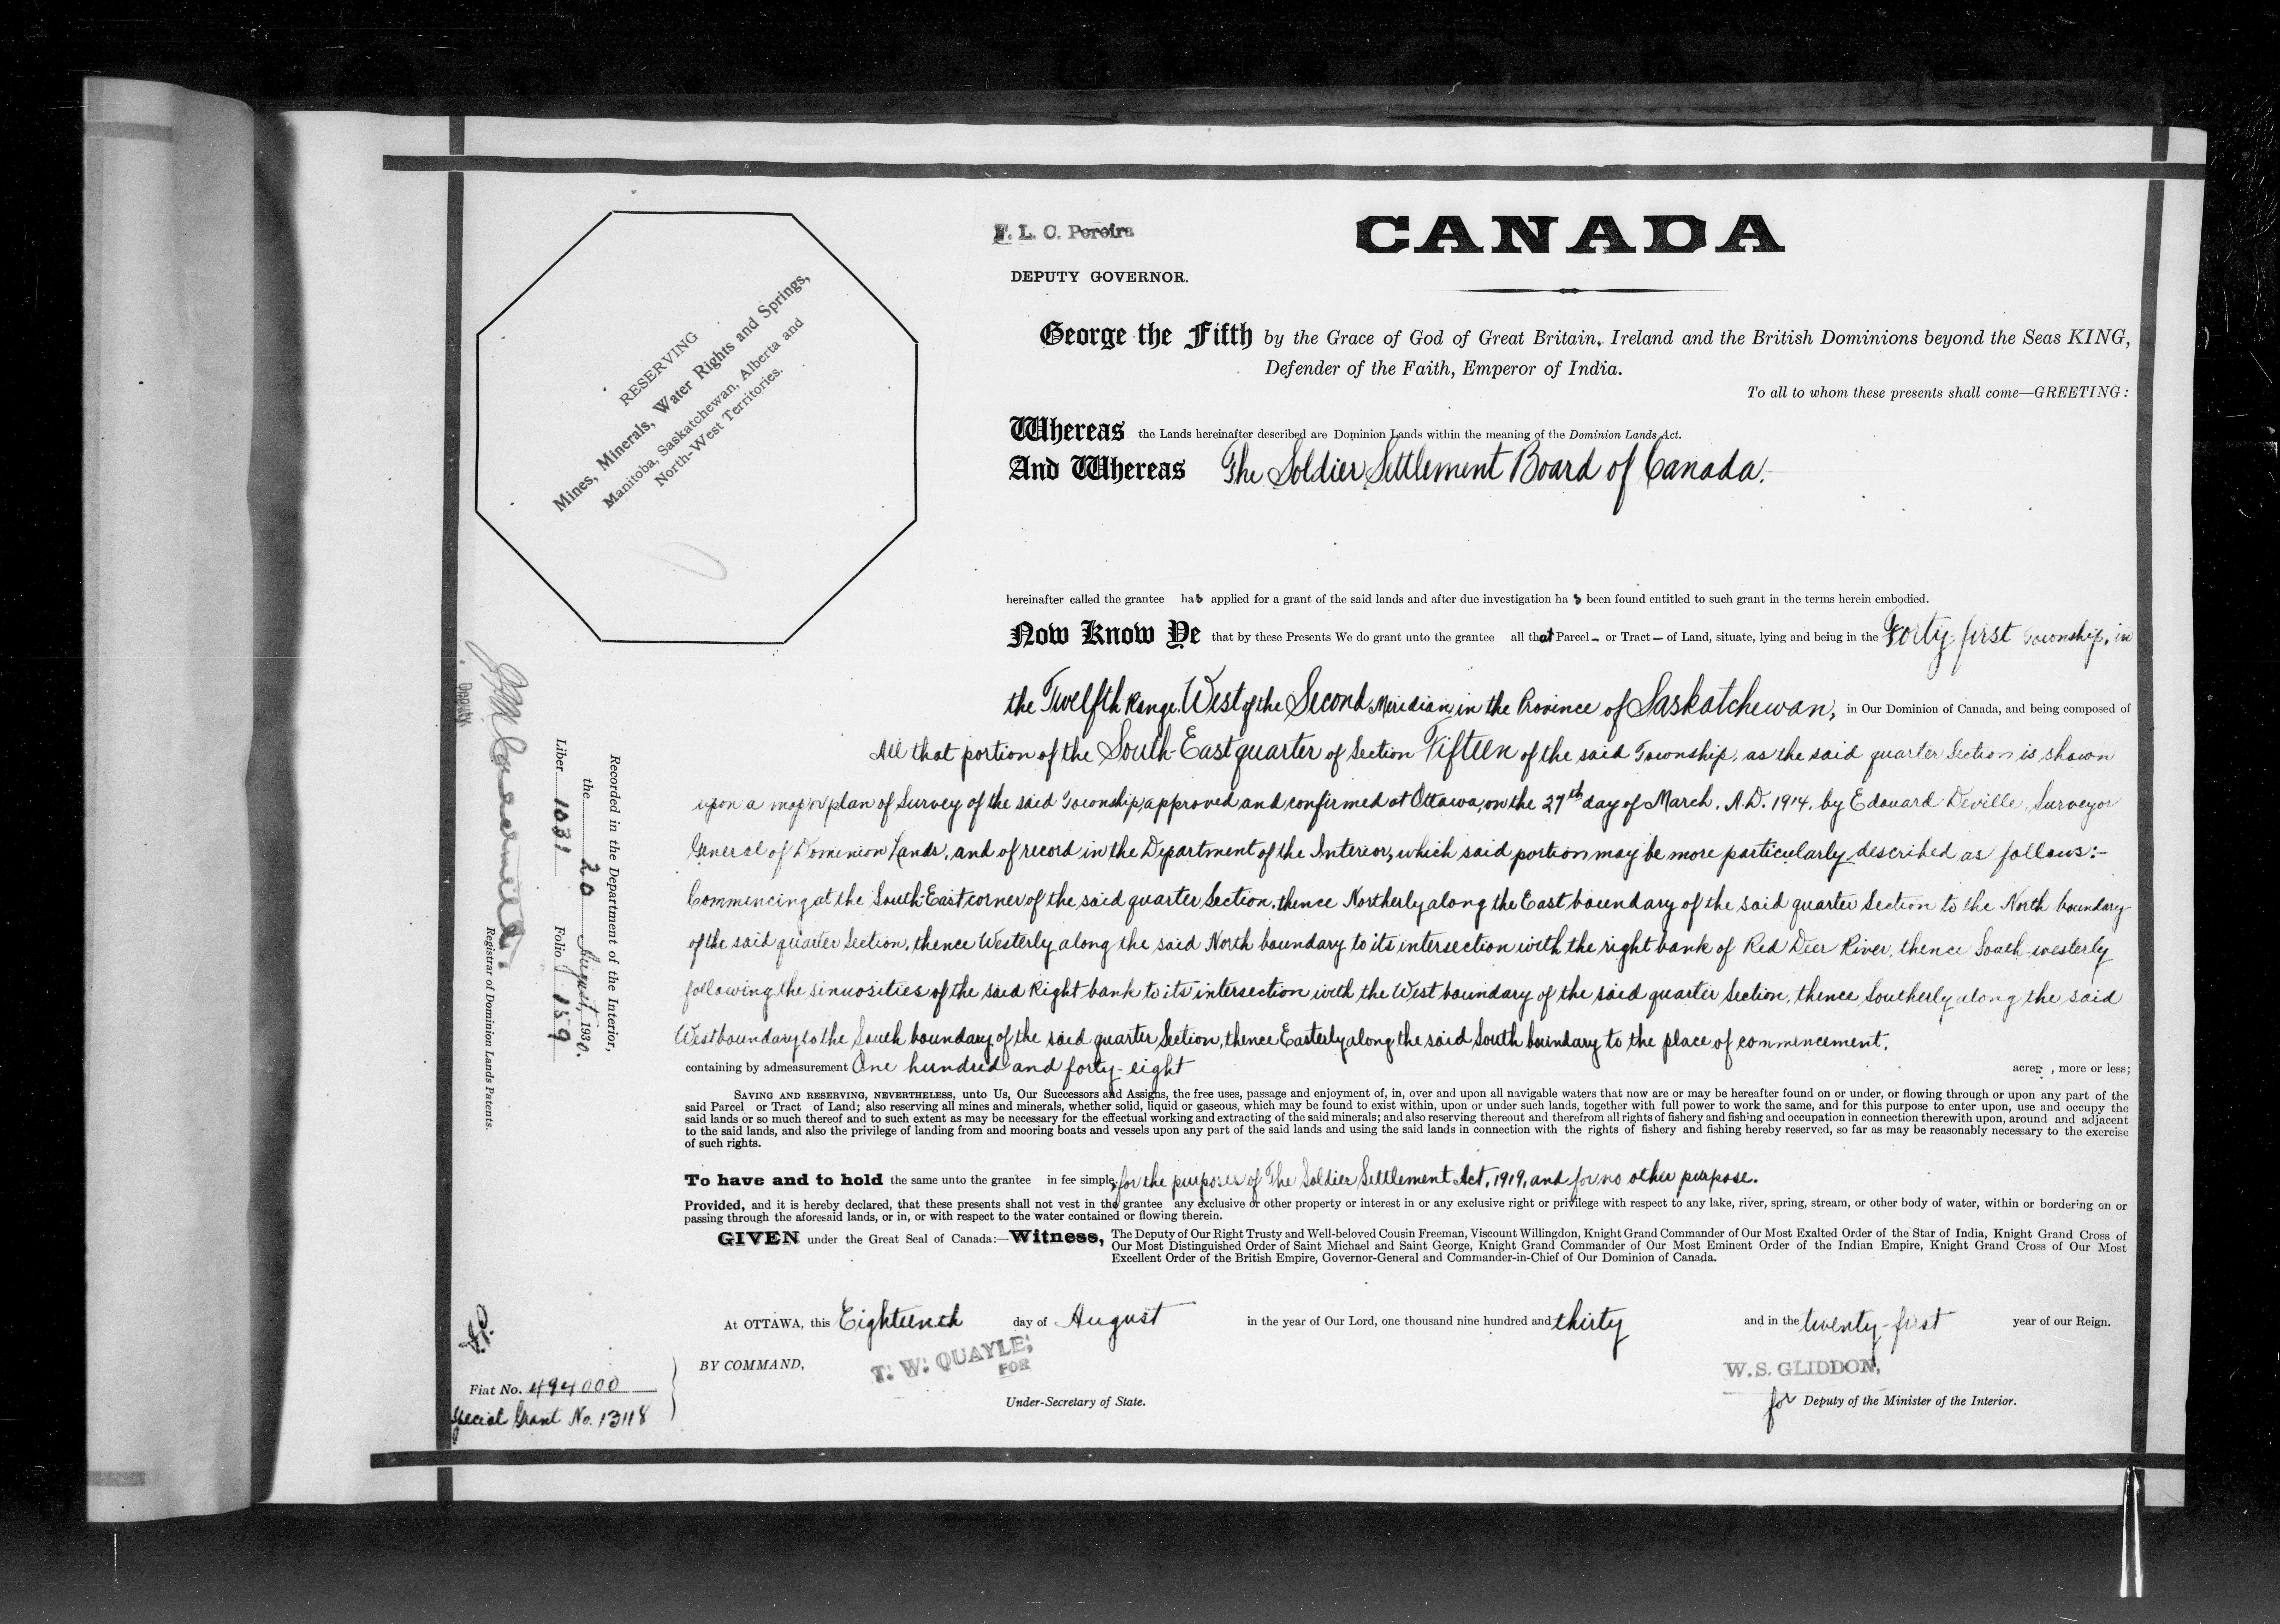 F. L. C. Pereira
DEPUTY GOVERNOR.
CANADA
RESERVING
Mines, Minerals, Water Rights and Springs,
Manitoba, Saskatchewan, Alberta and
North-West Territories.
George the Fifth by the Grace of God of Great Britain, Ireland and the British Dominions beyond the Seas KING,
Defender of the Faith, Emperor of India.
To all to whom these presents shall come—GREETING:
Whereas the Lands hereinafter described are Dominion Lands within the meaning of the Dominion Lands Act.
And Whereas The Soldier Settlement Board of Canada,
hereinafter called the grantee has applied for a grant of the said lands and after due investigation has been found entitled to such grant in the terms herein embodied.
Now Know Ye that by these Presents We do grant unto the grantee all that Parcel – or Tract – of Land, situate, lying and being in the Forty-first Township, in
the Twelfth Range, West of the Second Meridian, in the Province of Saskatchewan, in Our Dominion of Canada, and being composed of
All that portion of the South-East quarter of Section Fifteen of the said Township, as the said quarter Section is shown
upon a map or plan of Survey of the said Township, approved and confirmed at Ottawa, on the 27th day of March, A.D. 1914, by Edouard Deville, Surveyor
General of Dominion Lands, and of record in the Department of the Interior, which said portion may be more particularly described as follows:–
Commencing at the South-East corner of the said quarter Section, thence Northerly along the East boundary of the said quarter Section to the North boundary
of the said quarter Section, thence Westerly along the said North boundary to its intersection with the right bank of Red Deer River, thence South-westerly
following the sinuosities of the said Right bank to its intersection with the West boundary of the said quarter Section, thence Southerly along the said
West boundary to the South boundary of the said quarter Section, thence Easterly along the said South boundary to the place of commencement.
containing by admeasurement One hundred and forty-eight acres, more or less;
SAVING AND RESERVING, NEVERTHELESS, unto Us, Our Successors and Assigns, the free uses, passage and enjoyment of, in, over and upon all navigable waters that now are or may be hereafter found on or under, or flowing through or upon any part of the
said Parcel or Tract of Land; also reserving all mines and minerals, whether solid, liquid or gaseous, which may be found to exist within, upon or under such lands, together with full power to work the same, and for this purpose to enter upon, use and occupy the
said lands or so much thereof and to such extent as may be necessary for the effectual working and extracting of the said minerals; and also reserving thereout and therefrom all rights of fishery and fishing and occupation in connection therewith upon, around and adjacent
to the said lands, and also the privilege of landing from and mooring boats and vessels upon any part of the said lands and using the said lands in connection with the rights of fishery and fishing hereby reserved, so far as may be reasonably necessary to the exercise
of such rights.
To have and to hold the same unto the grantee in fee simple, for the purposes of The Soldier Settlement Act, 1919, and for no other purpose.
Provided, and it is hereby declared, that these presents shall not vest in the grantee any exclusive or other property or interest in or any exclusive right or privilege with respect to any lake, river, spring, stream, or other body of water, within or bordering on or
passing through the aforesaid lands, or in, or with respect to the water contained or flowing therein.
GIVEN under the Great Seal of Canada:—Witness, The Deputy of Our Right Trusty and Well-beloved Cousin Freeman, Viscount Willingdon, Knight Grand Commander of Our Most Exalted Order of the Star of India, Knight Grand Cross of
Our Most Distinguished Order of Saint Michael and Saint George, Knight Grand Commander of Our Most Eminent Order of the Indian Empire, Knight Grand Cross of Our Most
Excellent Order of the British Empire, Governor-General and Commander-in-Chief of Our Dominion of Canada.
At OTTAWA, this Eighteenth day of August in the year of Our Lord, one thousand nine hundred and thirty and in the twenty-first year of our Reign.
BY COMMAND,
T. W. QUAYLE,
FOR
Under-Secretary of State.
W. S. GLIDDON,
for Deputy of the Minister of the Interior.
Recorded in the Department of the Interior,
the 20 August, 1930.
Liber 1031 Folio 159
Deputy
Registrar of Dominion Lands Patents.
Fiat No. 494000
Special Grant No. 13118